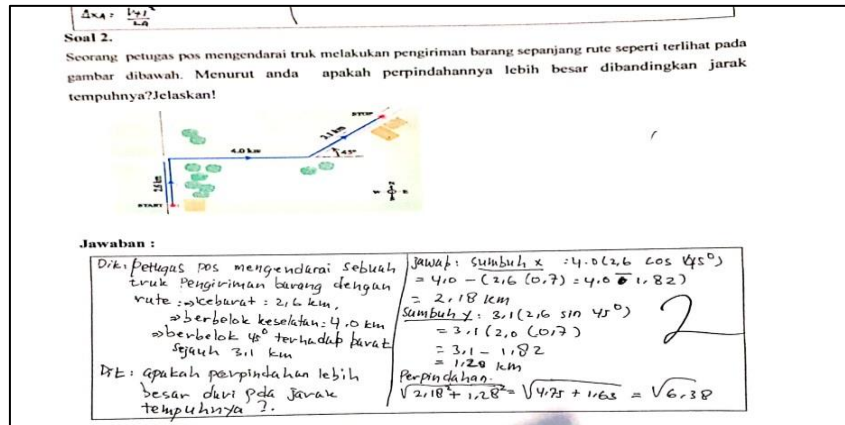 Δx₄ =
Soal 2.
Seorang petugas pos mengendarai truk melakukan pengiriman barang sepanjang rute seperti terlihat pada
gambar dibawah. Menurut anda apakah perpindahannya lebih besar dibandingkan jarak
tempuhnya?Jelaskan!
STOP
3.1 km
4.0 km
45°
START
Jawaban :
Dik: Pettugas pos mengendarai sebuah
truk pengiriman barang dengan
rute : ⇒ kebarat : 2,6 km,
⇒ berbelok keselatan : 4,0 km
⇒ berbelok 45° terhadap barat
sejauh 3,1 km
Dit : apakah perpindahan lebih
besar dari pda jarak
tempuhnya ?.
Jawab : sumbuh x : 4.0 (2,6 cos 45°)
= 4,0 - (2,6 (0,7) = 4,0 - 1,82)
= 2,18 km
Sumbuh y : 3,1 (2,6 sin 45°)
= 3.1 (2,0 (0,7)
= 3,1 - 1,82
= 1,28 km
Perpindahan.
√2,18² + 1,28² = √4,75 + 1,63 = √6,38
2